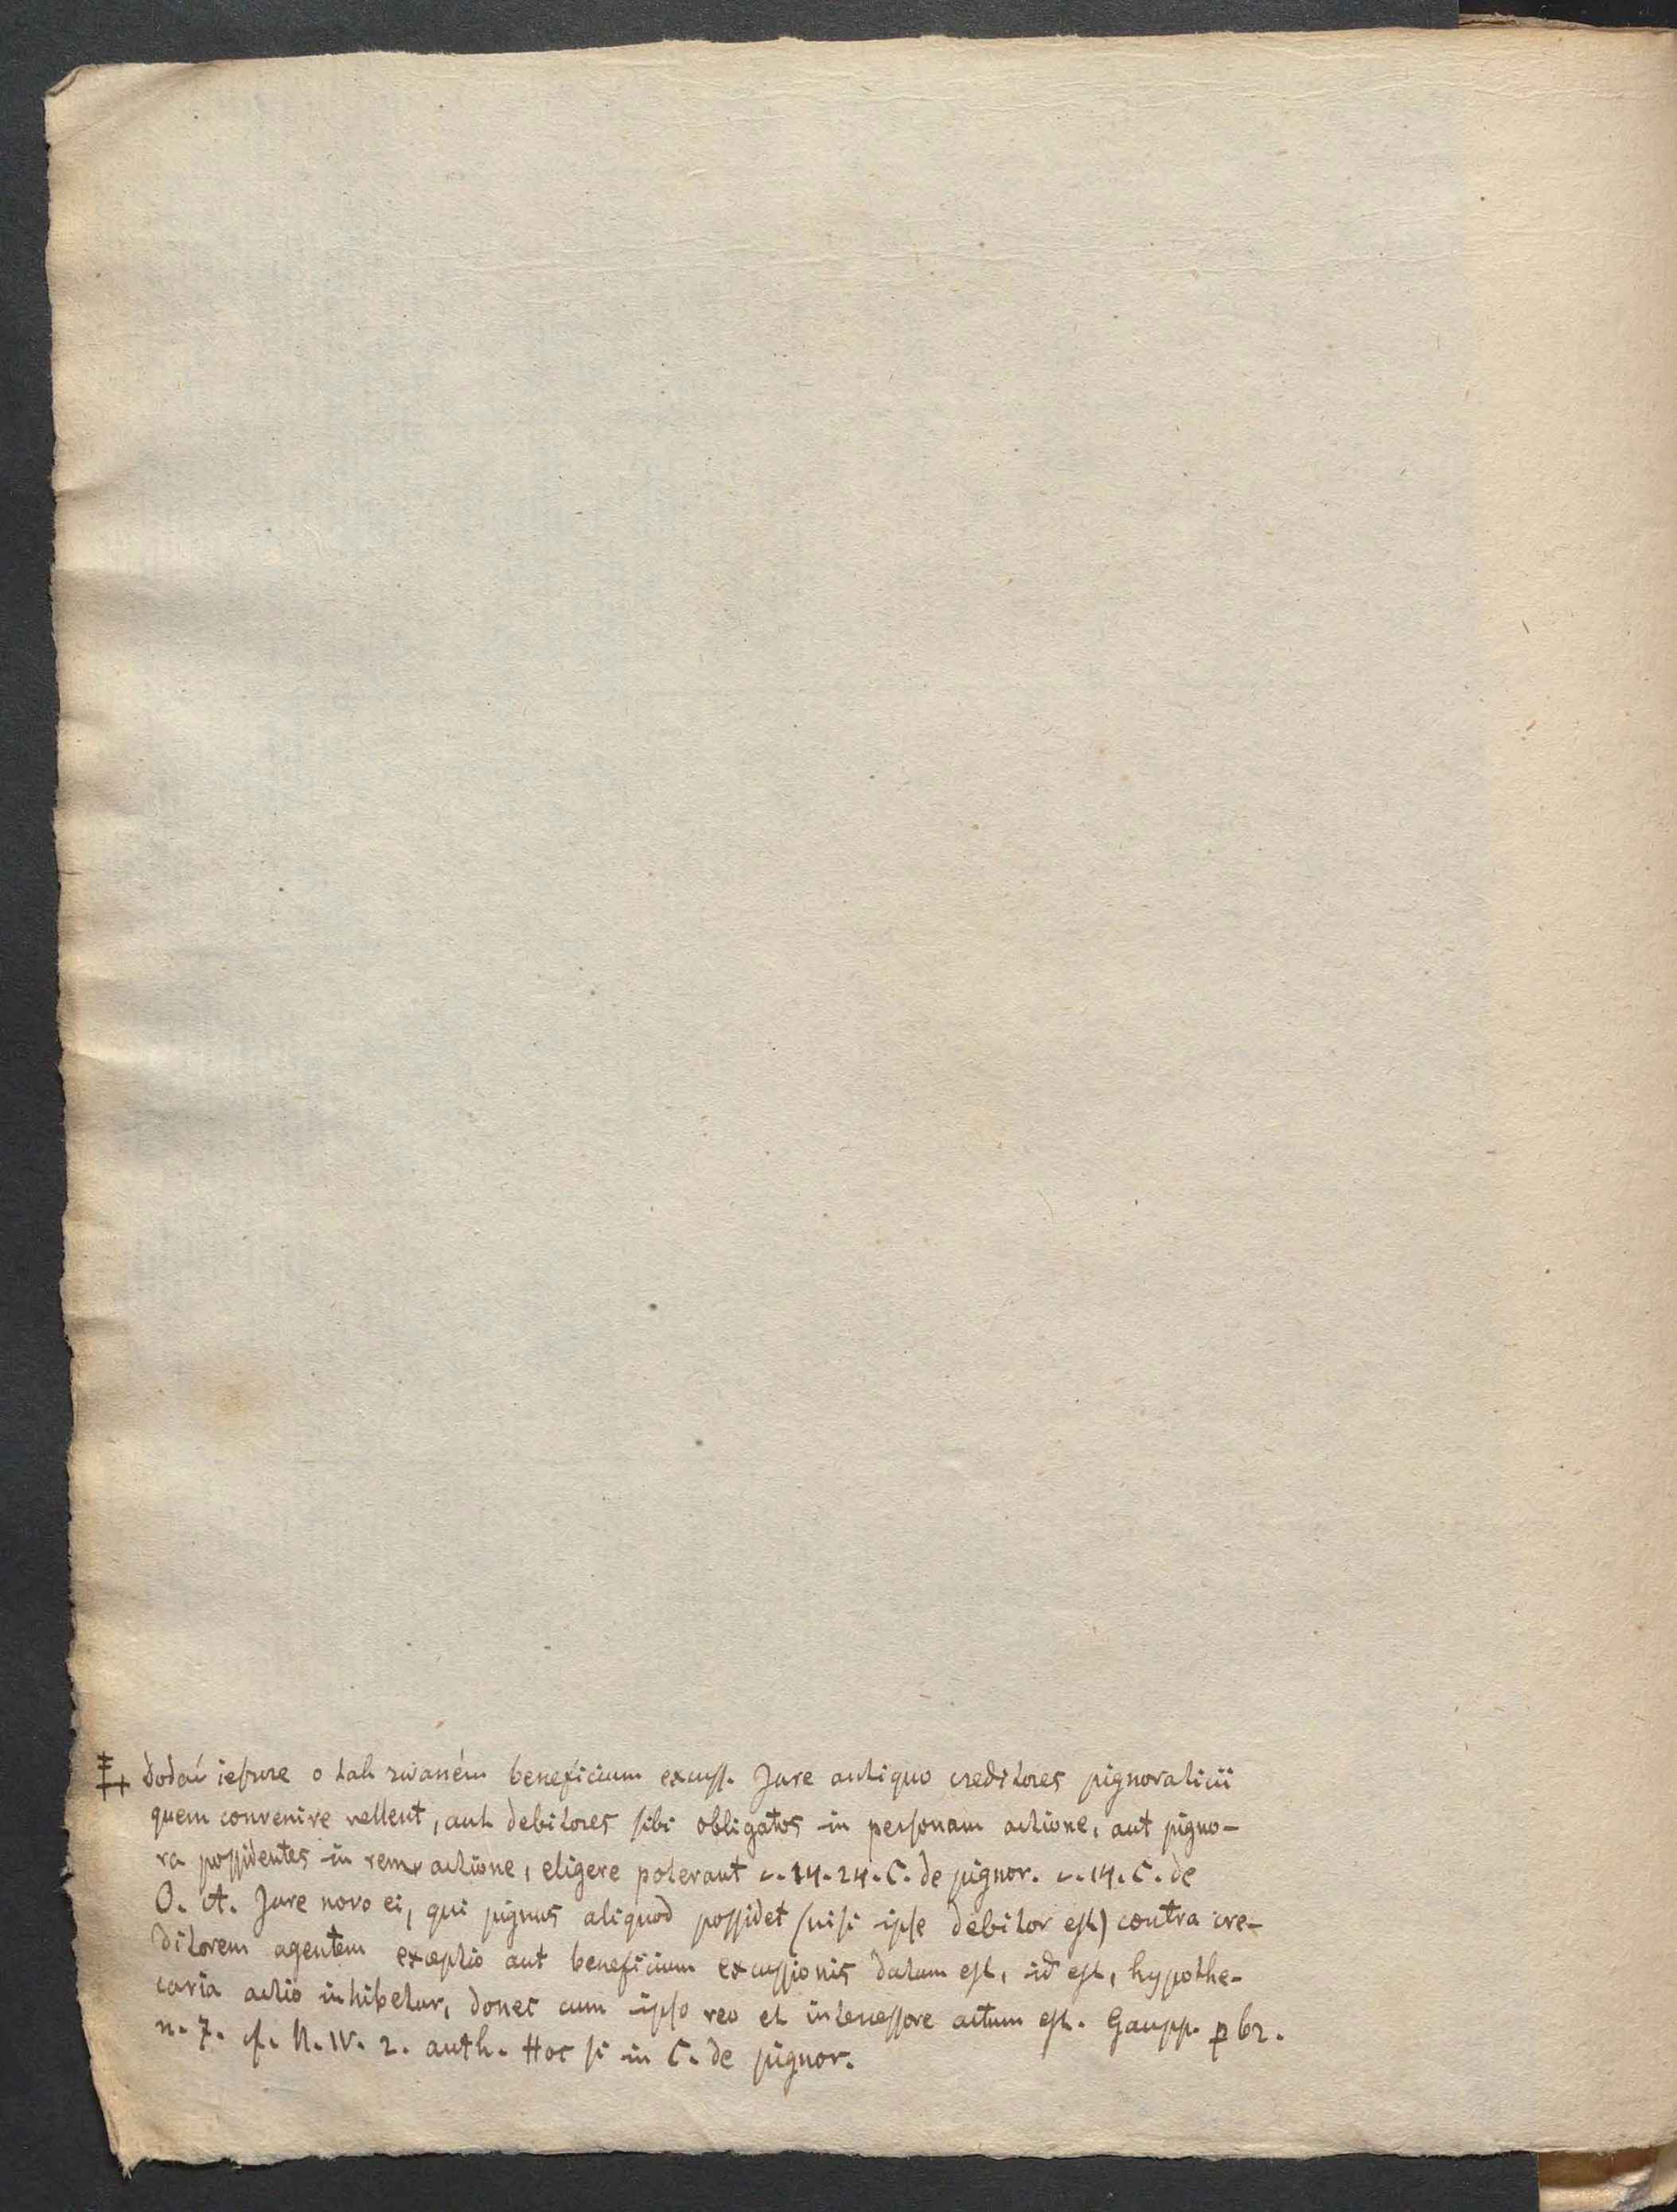 dodać jeszcze o tak zwaném beneficium excuss. Jure antiquo creditores pignoratitii
quem convenire vellent, aut debitores sibi obligatos in personam actione, aut pigno-
ra possidentes in rem actione, eligere poterant c. 14. 24. C. de pignor. c. 14. C. de
O. et A. Jure novo ei, qui pignus aliquod possidet (nisi ipse debitor est) contra cre-
ditorem agentem exceptio aut beneficium excussionis datum est, id est, hypothe-
caria actio inhibetur, donec cum ipso reo et intercessore actum est. Gaupp. p 62.
n. 7. cf. N. IV. 2. auth. Hoc si in C. de pignor.